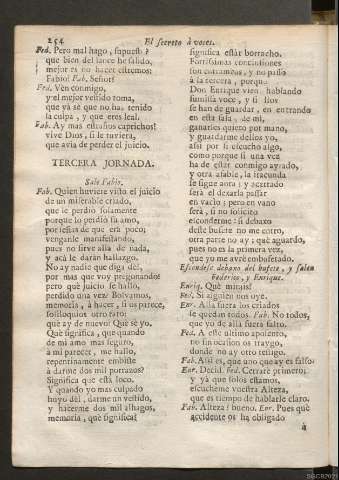 254
El secreto à voces.
Fed. Pero mal hago, supuesto
que bien del lance he salido,
mejor es no hacer estremos:
Fabio! Fab. Señor?
Fed. Ven conmigo,
y el mejor vestido toma,
que ya sé que no has tenido
la culpa, y que eres leal.
Fab. Ay mas estraños caprichos!
vive Dios, si le tuviera,
que avia de perder el juicio.
TERCERA JORNADA.
Sale Fabio.
Fab. Quien huviere visto el juicio
de un miserable criado,
que le perdiò solamente
porque lo perdiò su amo,
por señas de que era poco;
vengale manifestando,
pues no sirve allà de nada,
y acà le daràn hallazgo.
No ay nadie que diga dèl,
por mas que voy preguntando;
pero què juicio se halla,
perdido una vez? Bolvamos,
memoria, à hacer, si os parece,
soliloquios otro rato:
què ay de nuevo? Què sè yo.
Què significa, que quando
de mi amo mas seguro,
à mi parecer, me hallo,
repentinamente embiste
à darme dos mil porrazos?
Significa què està loco.
Y quando yo mas culpado
huyo dèl, darme un vestido,
y hacerme dos mil alhagos,
memoria, què significa?
significa estàr borracho.
Fortissimas conclusiones
son entrambas, y no passo
à la tercera, porque
Don Enrique viene hablando
sumissa voce, y si los
se han de guardar, en entrando
en esta sala, de mi,
ganarles quiero por mano,
y guardarme dellos yo,
assi por si escucho algo,
como porque si una vez
ha de estàr conmigo ayrado,
y otra afable, la iracunda
se sigue aora; y acertado
serà el dexarla passar
en vacio; pero en vano
serà, si no solicito
esconderme: si debaxo
deste bufete no me entro,
otra parte no ay; què aguardo,
pues no es la primera vez,
que yo me avrè embufetado.
Escondese debaxo del bufete, y salen
Federico, y Enrique.
Enriq. Què mirais?
Fed. Si alguien nos oye.
Enr. Allà fuera los criados
se quedan todos. Fab. No todos,
que yo de allà fuera falto.
Fed. A este ultimo aposento,
no sin ocasion os traygo,
donde no ay otro testigo.
Fab. Assi es, que uno que ay es falso.
Enr. Decid. Fed. Cerrarè primero;
y yà que solos estamos,
escucheme vuestra Alteza,
que es tiempo de hablarle claro.
Fab. Alteza? bueno. Enr. Pues què
accidente os ha obligado
à